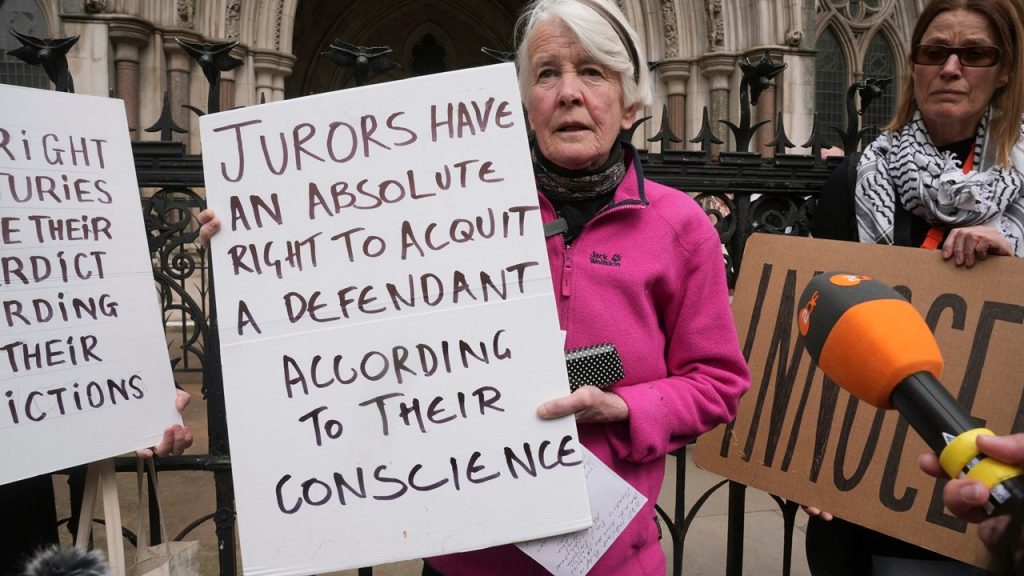 RIGHT
JURIES
E THEIR
RDICT
RDING
THEIR
ICTIONS
JURORS HAVE
AN ABSOLUTE
RIGHT TO ACQUIT
A DEFENDANT
ACCORDING
TO THEIR
CONSCIENCE
Jack
Wolfskin
INNOCE